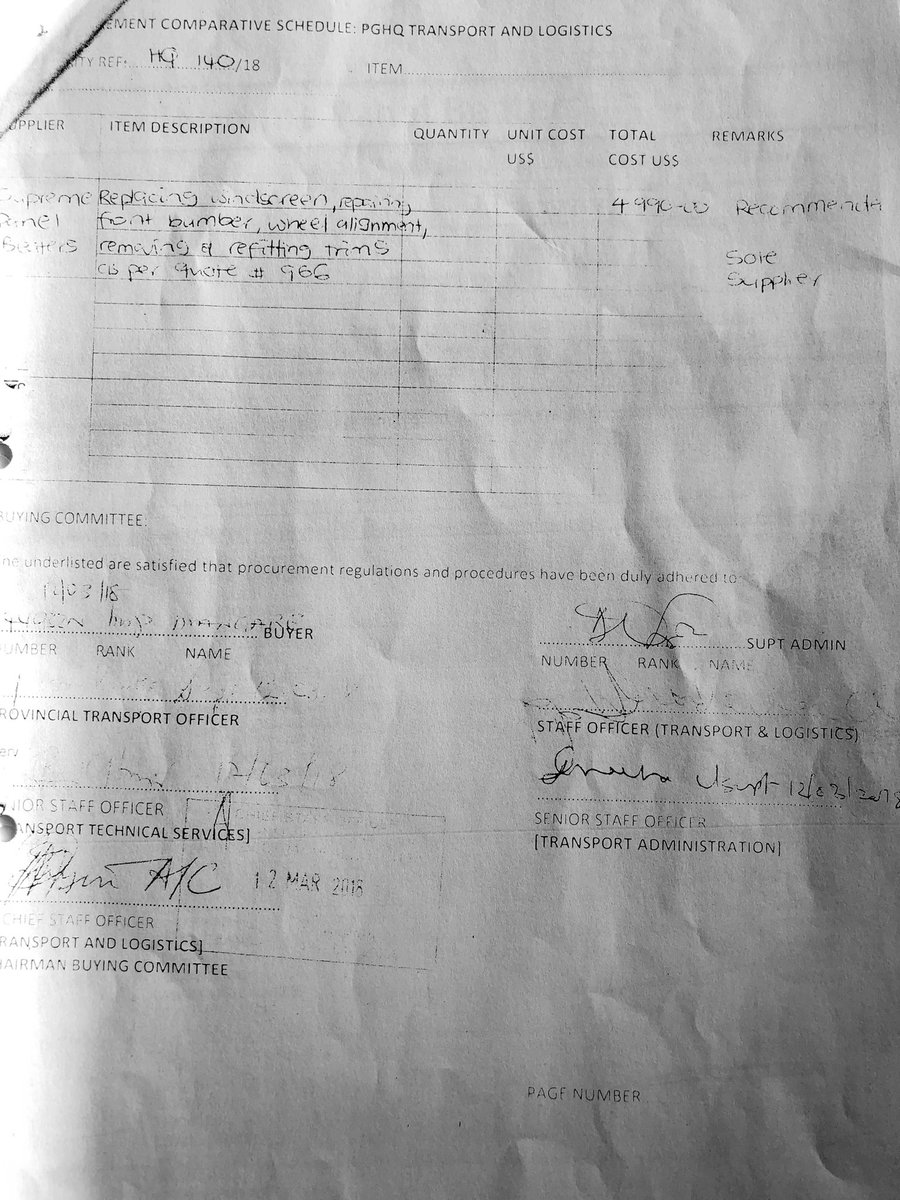 EMENT COMPARATIVE SCHEDULE: PGHQ TRANSPORT AND LOGISTICS
ITY REF: HQ 140/18 ITEM
UPPLIER ITEM DESCRIPTION QUANTITY UNIT COST US$ TOTAL COST US$ REMARKS
Supreme Replacing windscreen, repairing 4 990-00 Recommended
Panel front bumber, wheel alignment,
Beaters removing & refitting trims Sole
as per quote # 966 Supplier
BUYING COMMITTEE:
he underlisted are satisfied that procurement regulations and procedures have been duly adhered to:
12/03/18
BUYER
SUPT ADMIN
NUMBER RANK NAME
NUMBER RANK NAME
PROVINCIAL TRANSPORT OFFICER
STAFF OFFICER (TRANSPORT & LOGISTICS)
12/03/18
Usupt 12/03/2018
NIOR STAFF OFFICER
ANSPORT TECHNICAL SERVICES]
SENIOR STAFF OFFICER
[TRANSPORT ADMINISTRATION]
A/C 12 MAR 2018
CHIEF STAFF OFFICER
RANSPORT AND LOGISTICS]
HAIRMAN BUYING COMMITTEE
PAGE NUMBER